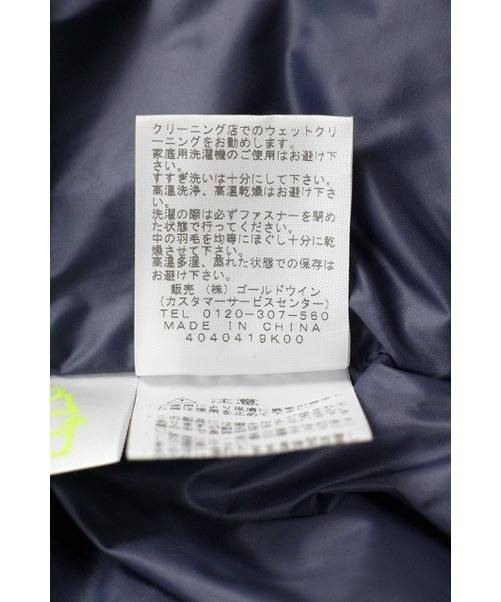 クリーニング店でのウェットクリ
ーニングをお勧めします。
家庭用洗濯機のご使用はお避け下
さい。
すすぎ洗いは十分にして下さい。
高温洗浄、高温乾燥はお避け下さ
い。
洗濯の際は必ずファスナーを閉め
た状態で行ってください。
中の羽毛を均等にほぐし十分に乾
燥させて下さい。
高温多湿、蒸れた状態での保存は
お避け下さい。
販売 (株) ゴールドウイン
(カスタマーサービスセンター)
TEL 0120-307-560
MADE IN CHINA
4040419K00
注意